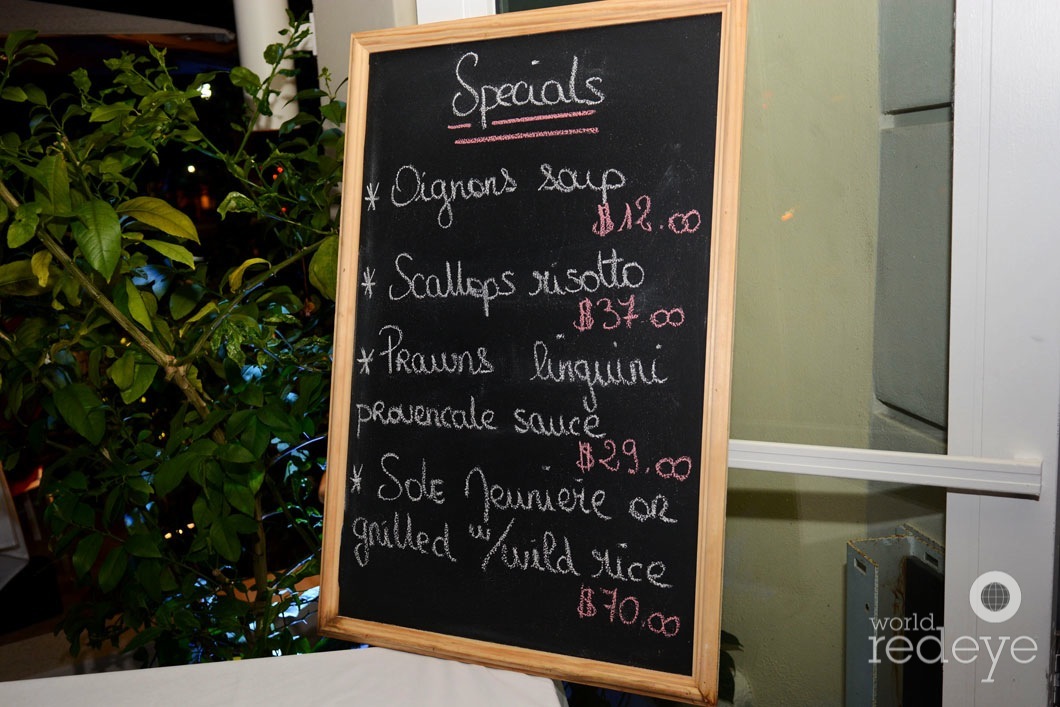 Specials
* Oignons soup
$12.00
* Scallops risotto
$37.00
* Prawns linguini
provencale sauce
$29.00
* Sole Meuniere or
grilled w/wild rice
$70.00
world
redeye